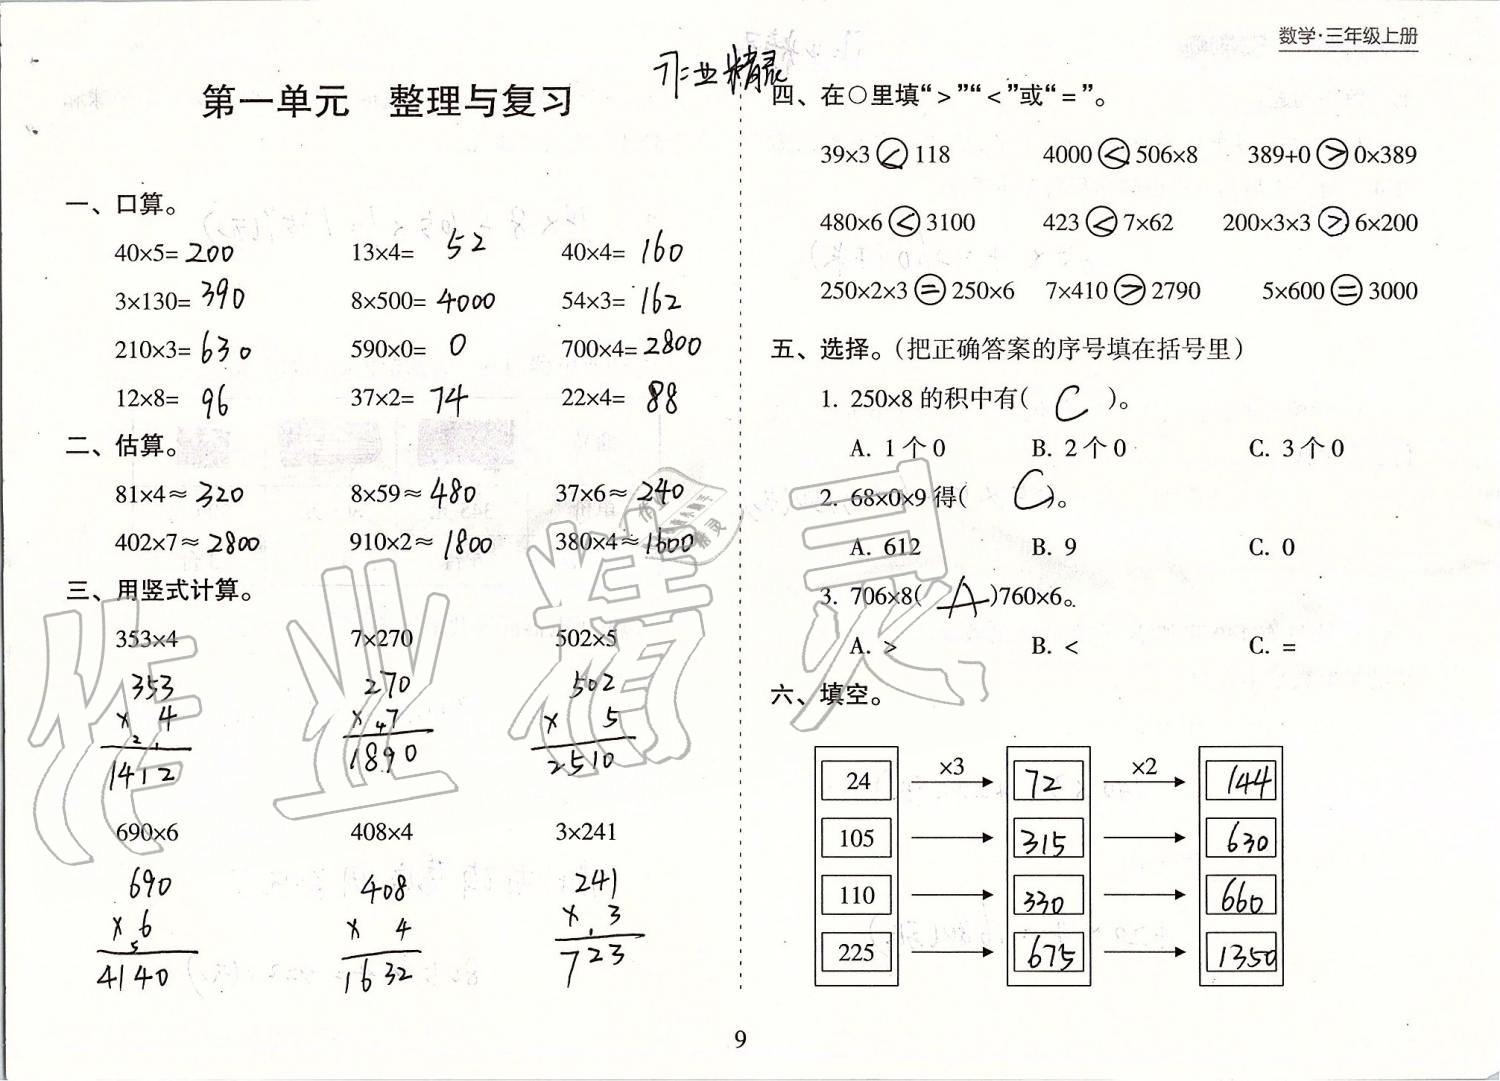 数学·三年级上册
作业精灵
第一单元 整理与复习
一、口算。
40×5=200 13×4=52 40×4=160
3×130=390 8×500=4000 54×3=162
210×3=630 590×0=0 700×4=2800
12×8=96 37×2=74 22×4=88
二、估算。
81×4≈320 8×59≈480 37×6≈240
402×7≈2800 910×2≈1800 380×4≈1600
三、用竖式计算。
353×4 7×270 502×5
353 270 502
× 4 × 7 × 5
2 1 4
1412 1890 2510
690×6 408×4 3×241
690 408 241
× 6 × 4 × 3
5 1
4140 1632 723
四、在○里填“>”“<”或“=”。
39×3<118 4000<506×8 389+0>0×389
480×6<3100 423<7×62 200×3×3>6×200
250×2×3=250×6 7×410>2790 5×600=3000
五、选择。(把正确答案的序号填在括号里)
1. 250×8的积中有( C )。
A. 1个0 B. 2个0 C. 3个0
2. 68×0×9得( C )。
A. 612 B. 9 C. 0
3. 706×8( A )760×6。
A. > B. < C. =
六、填空。
24 ×3 72 ×2 144
105 315 630
110 330 660
225 675 1350
9
作业精灵